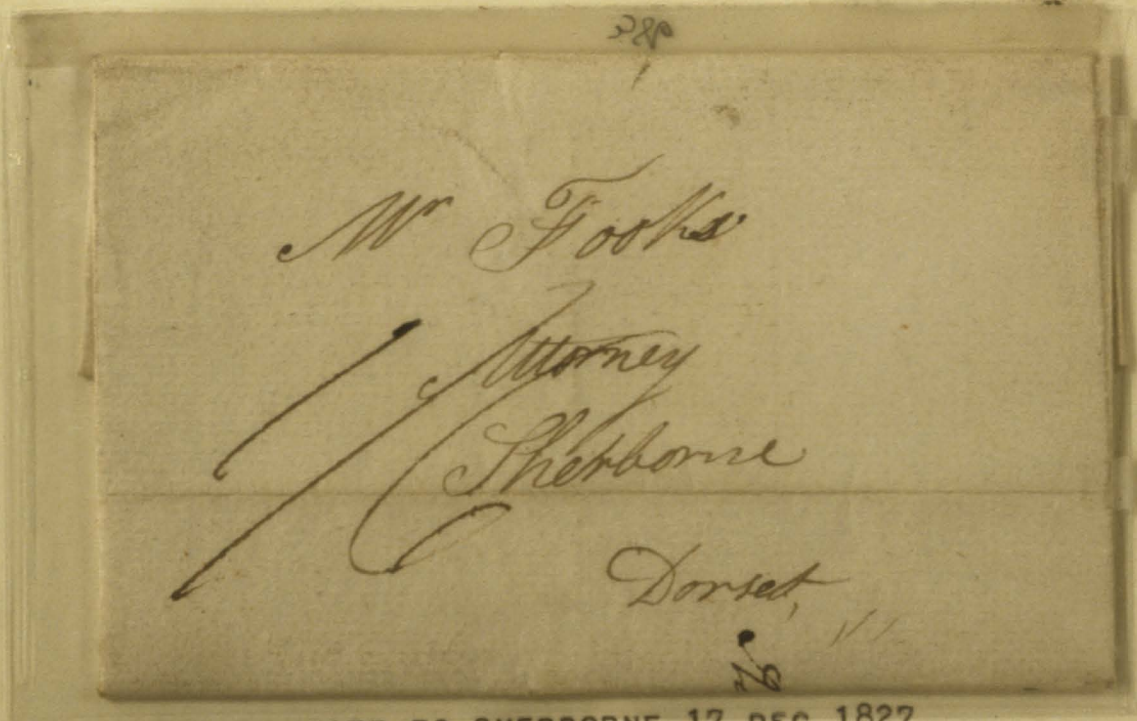 Mr Fooks
Attorney
Sherborne
Dorset,
SHERBORNE 17 DEC 1827